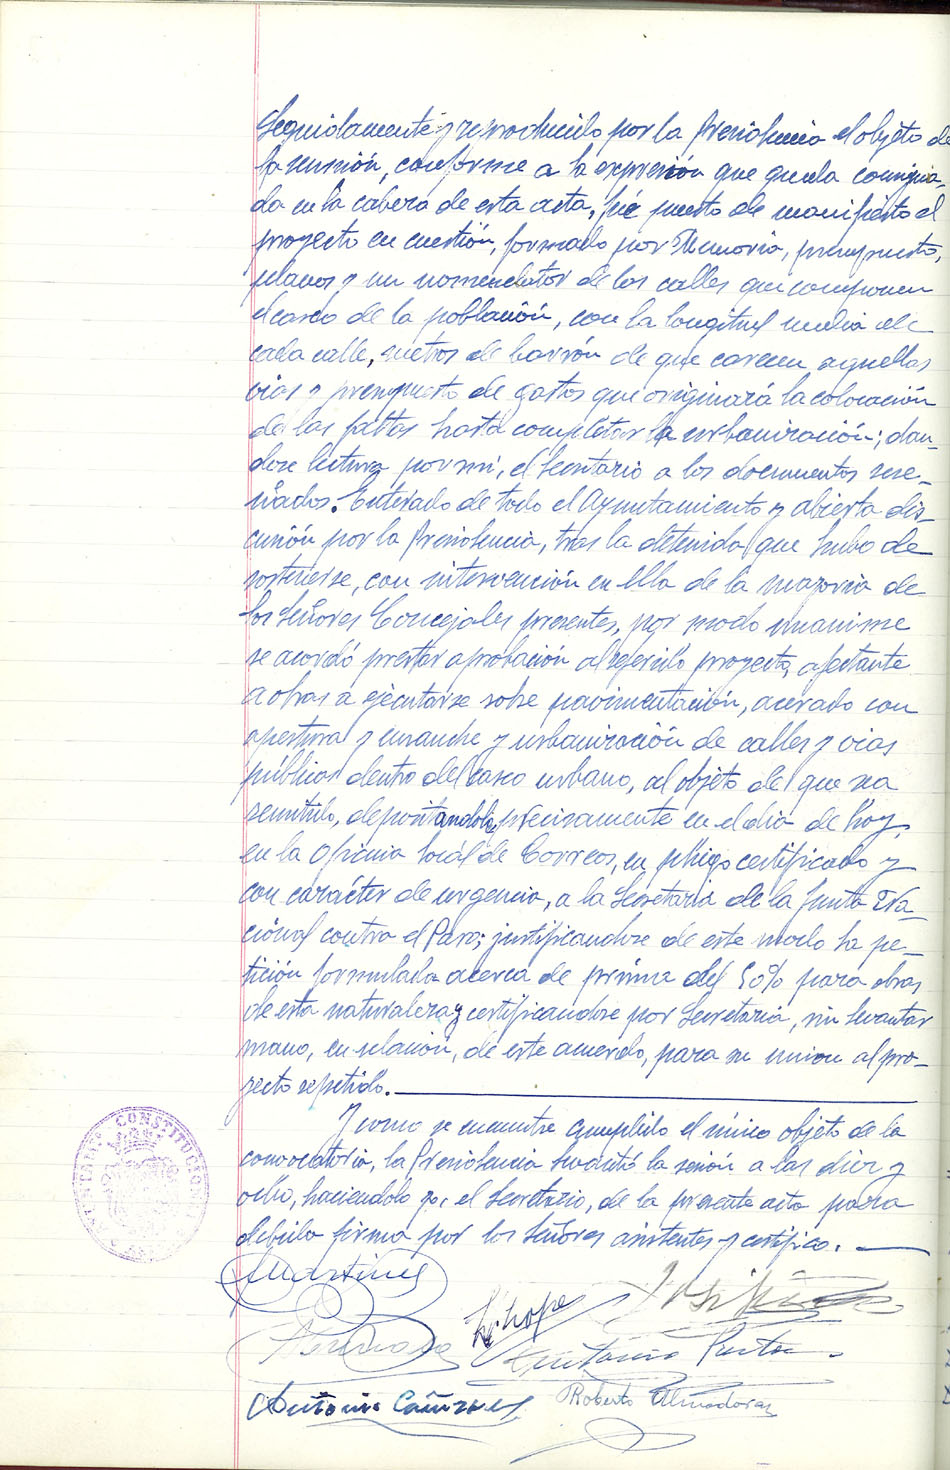 Seguidamente y reproducido por la Presidencia el objeto de
la reunión, conforme a la expresión que queda consigna-
da en la cabeza de esta acta, fué puesto de manifiesto el
proyecto en cuestión, formado por Memoria, presupuesto,
planos y un nomenclator de las calles que componen
el casco de la población, con la longitud media de
cada calle, metros de de que carecen aquellas
vias y presupuesto de gastos que originará la colocación
de las faltas hasta completar la urbanización; dan-
dose lectura por mi, el Secretario a los documentos rese-
ñados. Enterado de todo el Ayuntamiento y abierta dis-
cusión por la Presidencia, tras la detenida que hubo de
sostenerse, con intervención en ella de la mayoria de
los Señores Concejales presentes, por modo unanime
se acordó prestar aprobación al referido proyecto, afectante
a obras a ejecutarse sobre pavimentación, acerado con
apertura y ensanche y urbanización de calles y vias
públicas dentro del casco urbano, al objeto de que sea
remitido, depositandolo precisamente en el dia de hoy,
en la Oficina local de Correos, en pliego certificado y
con carácter de urgencia, a la Secretaria de la Junta Na-
cional contra el Paro; justificandose de este modo la pe-
tición formulada acerca de prima del 50% para obras
de esta naturaleza y certificandose por Secretaria, sin levantar
mano, en relación, de este acuerdo, para su union al pro-
yecto repetido.
Y como se encuentre cumplido el único objeto de la
convocatoria, la Presidencia levantó la sesión a las diez y
ocho, haciendolo yo, el Secretario, de la presente acta para
debida firma por los Señores asistentes y certifico.
AYUNTAMIENTO CONSTITUCIONAL
Martinez
Antonio
Antonio Cañizares
Roberto Almodovar